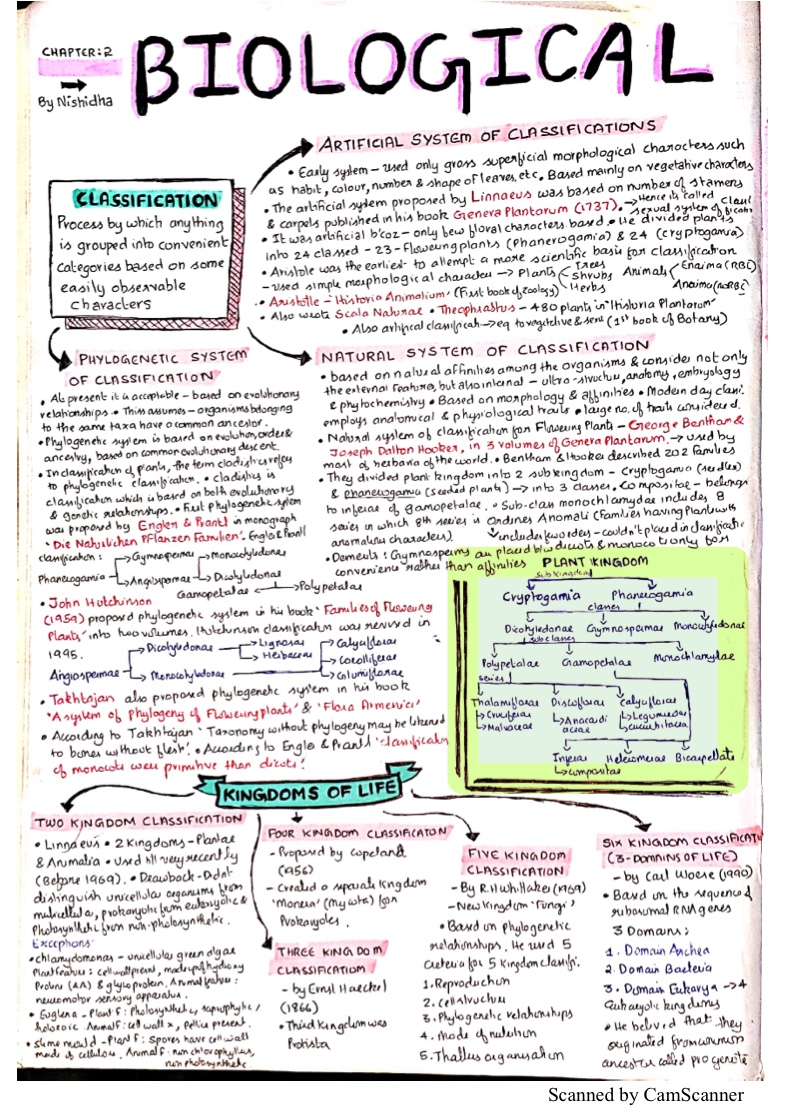 CHAPTER:2
By Nishidha
BIOLOGICAL
CLASSIFICATION
Process by which anything
is grouped into convenient
categories based on some
easily observable
characters
ARTIFICIAL SYSTEM OF CLASSIFICATIONS
• Early system – used only gross superficial morphological characters such
as habit, colour, number & shape of leaves, etc. Based mainly on vegetative characters
• The artificial system proposed by Linnaeus was based on number of stamens
& carpels published in his book Genera Plantorum (1737). → Hence its called
sexual system of
• It was artificial b'coz – only few floral characters based • He divided plants
into 24 classed – 23 – Flowering plants (Phanerogamia) & 24 (Cryptogamia)
• Aristole was the earliest to attempt a more scientific basis for classification
– used simple morphological character → Plants Trees Shrubs Herbs Animals Enaima (RBC)
Anaima (no RBC)
• Aristotle – 'Historia Animalium' (First book of Zoology)
• Also wrote Scala Naturae • Theophrastus – 480 plants in 'Historia Plantorum'
• Also artifical classificatn → eq to vegetative & sexul (1st book of Botany)
PHYLOGENETIC SYSTEM
OF CLASSIFICATION
• At present it is acceptable – based on evolutionary
relationships • This assumes – organisms belonging
to the same taxa have a common ancestor.
• Phylogenetic system is based on evolution, order &
ancestry, based on common evolutionary descent.
• In classification of plants, the term cladistics refers
to phylogenetic classification. • cladistics is
classification which is based on both evolutionary
& genetic relationships. • First phylogenetic system
was proposed by Engler & Prantl in monograph
'Die Naturlichen Pflanzen Familien'. Engler & Prantl
classification :
Gymnospermae Monocotyledonae
Phanerogamia Angiospermae Dicotyledonae
Gamopetalae Polypetalae
• John Hutchinson
(1959) proposed phylogenetic system in his book 'Families of Flowering
Plants' into two volumes. Hutchinson classification was revised in
1995.
Dicotyledonae Lignosae Calyciflorae
Herbaceae Corolliferae
Angiospermae Monocotyledonae Glumiflorae
• Takhtajan also proposed phylogenetic system in his book
'A system of Phylogeny of Flowering Plants' & 'Flora Armenica'
• According to Takhtajan 'Taxonomy without phylogeny may be likened
to bones without flesh'. • According to Engler & Prantl 'classification
of monocots were primitive than dicots'.
NATURAL SYSTEM OF CLASSIFICATION
• based on natural affinities among the organisms & consider not only
the external features, but also internal – ultra-structure, anatomy, embryology
& phytochemistry • Based on morphology & affinities • Modern day classi.
employs anatomical & physiological traits • large no. of traits considered.
• Natural system of classification for Flowering Plants – George Bentham &
Joseph Dalton Hooker, in 3 volumes of Genera Plantarum. → used by
most of herbaria of the world. • Bentham & Hooker described 202 Families
• They divided plant kingdom into 2 subkingdom – Cryptogamia (seedless)
& phanerogamia (seeded plants) → into 3 classes. Compositae – belongs
to inferae of gamopetalae. • Sub-class monochlamydae includes 8
series in which 8th series is Ordines Anomali (Families having Plant with
anomalous characters)
includes few orders – couldn't placed in classificatn
• Demerits : Gymnosperms are placed b/w dicots & monocots only for
convenience rather than affinities
PLANT KINGDOM
Subkingdom
Cryptogamia Phanerogamia
classes
Dicotyledonae Gymnospermae Monocotyledonae
subclasses
Polypetalae Gamopetalae Monochlamydae
series
Thalamiflorae Disciflorae Calyciflorae
Cruciferae Anacardi Legumosae
Malvaceae aceae Cucurbitacea
Inferae Heteromerae Bicarpellate
compositae
KINGDOMS OF LIFE
TWO KINGDOM CLASSIFICATION
• Linnaeus • 2 Kingdoms – Plantae
& Animalia • Used till very recently
(Before 1969). • Drawback – Didnt
distinguish unicellular organisms from
multicellular, prokaryotic from eukaryotic &
Photosynthetic from non-photosynthetic.
Exceptions:
• chlamydomonas – unicellular green algae
Plant feature : cell wall present, made up of hydroxy
Proline (AA) & glycoprotein. Animal feature :
neuromotor sensory apparatus.
• Euglena – Plant F : Photosynthetic, saprophytic /
holozoic. Animal F : cell wall x, Pellicle present.
• Slime mould – Plant F : Spores have cell wall
made of cellulose. Animal F – non chlorophyllus,
non photosynthetic
FOUR KINGDOM CLASSIFICATON
– Proposed by Copeland
(1956)
– Created a separate kingdom
'Monera' (Mychota) for
Prokaryotes.
THREE KINGDOM
CLASSIFICATIOM
– by Ernst Haeckel
(1866)
• Third Kingdom was
Protista
FIVE KINGDOM
CLASSIFICATION
– By R.H Whittaker (1969)
– New Kingdom 'Fungi'
• Based on phylogenetic
relationships. He used 5
creteria for 5 kingdom classifi.
1. Reproduction
2. Cell structure
3. Phylogenetic relationships
4. Mode of nutrition
5. Thallus organisation
SIX KINGDOM CLASSIFICATI
(3-DOMAINS OF LIFE)
– by Carl Woese (1990)
• Based on the sequence of
ribosomal RNA genes
3 Domains:
1. Domain Archea
2. Domain Bacteria
3. Domain Eukarya → 4
Eukaryotic kingdoms
• He belived that they
originated from common
ancestor called progenote
Scanned by CamScanner